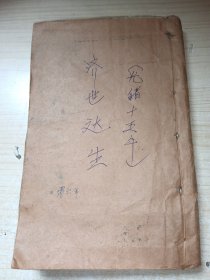 (光緒十五年)
济世达生